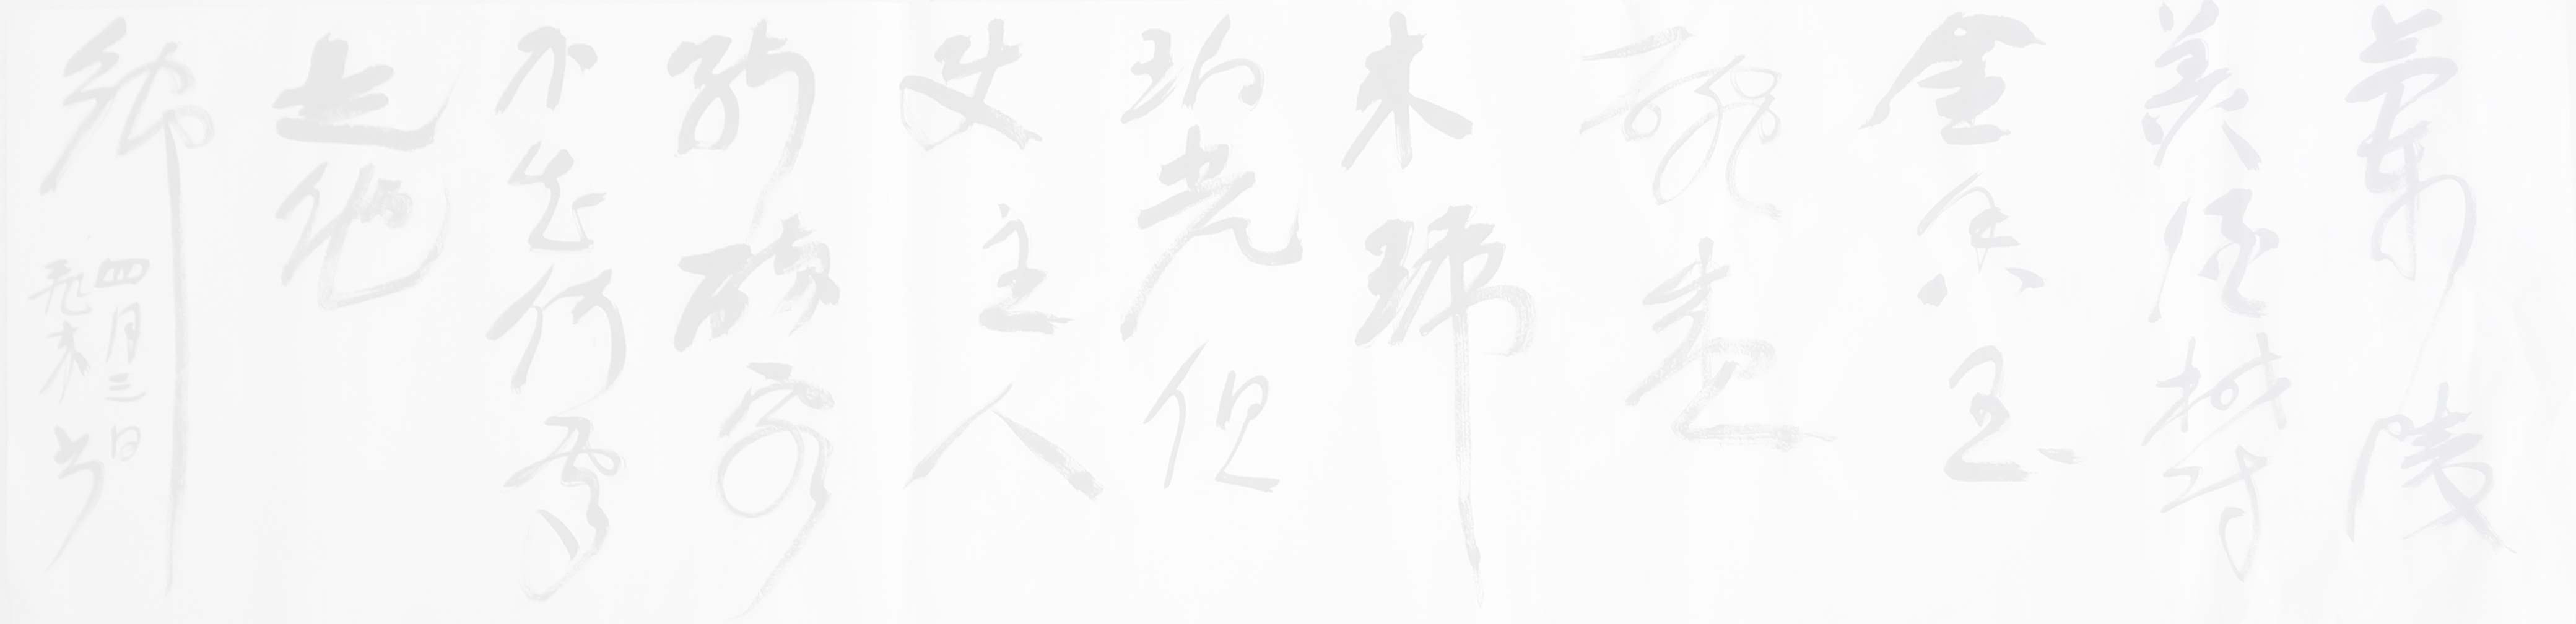 蘭陵
美酒鬱
金香玉
碗盛
来琥
珀光但
使主人
能醉客
不知何處
是他
鄉
四月三日